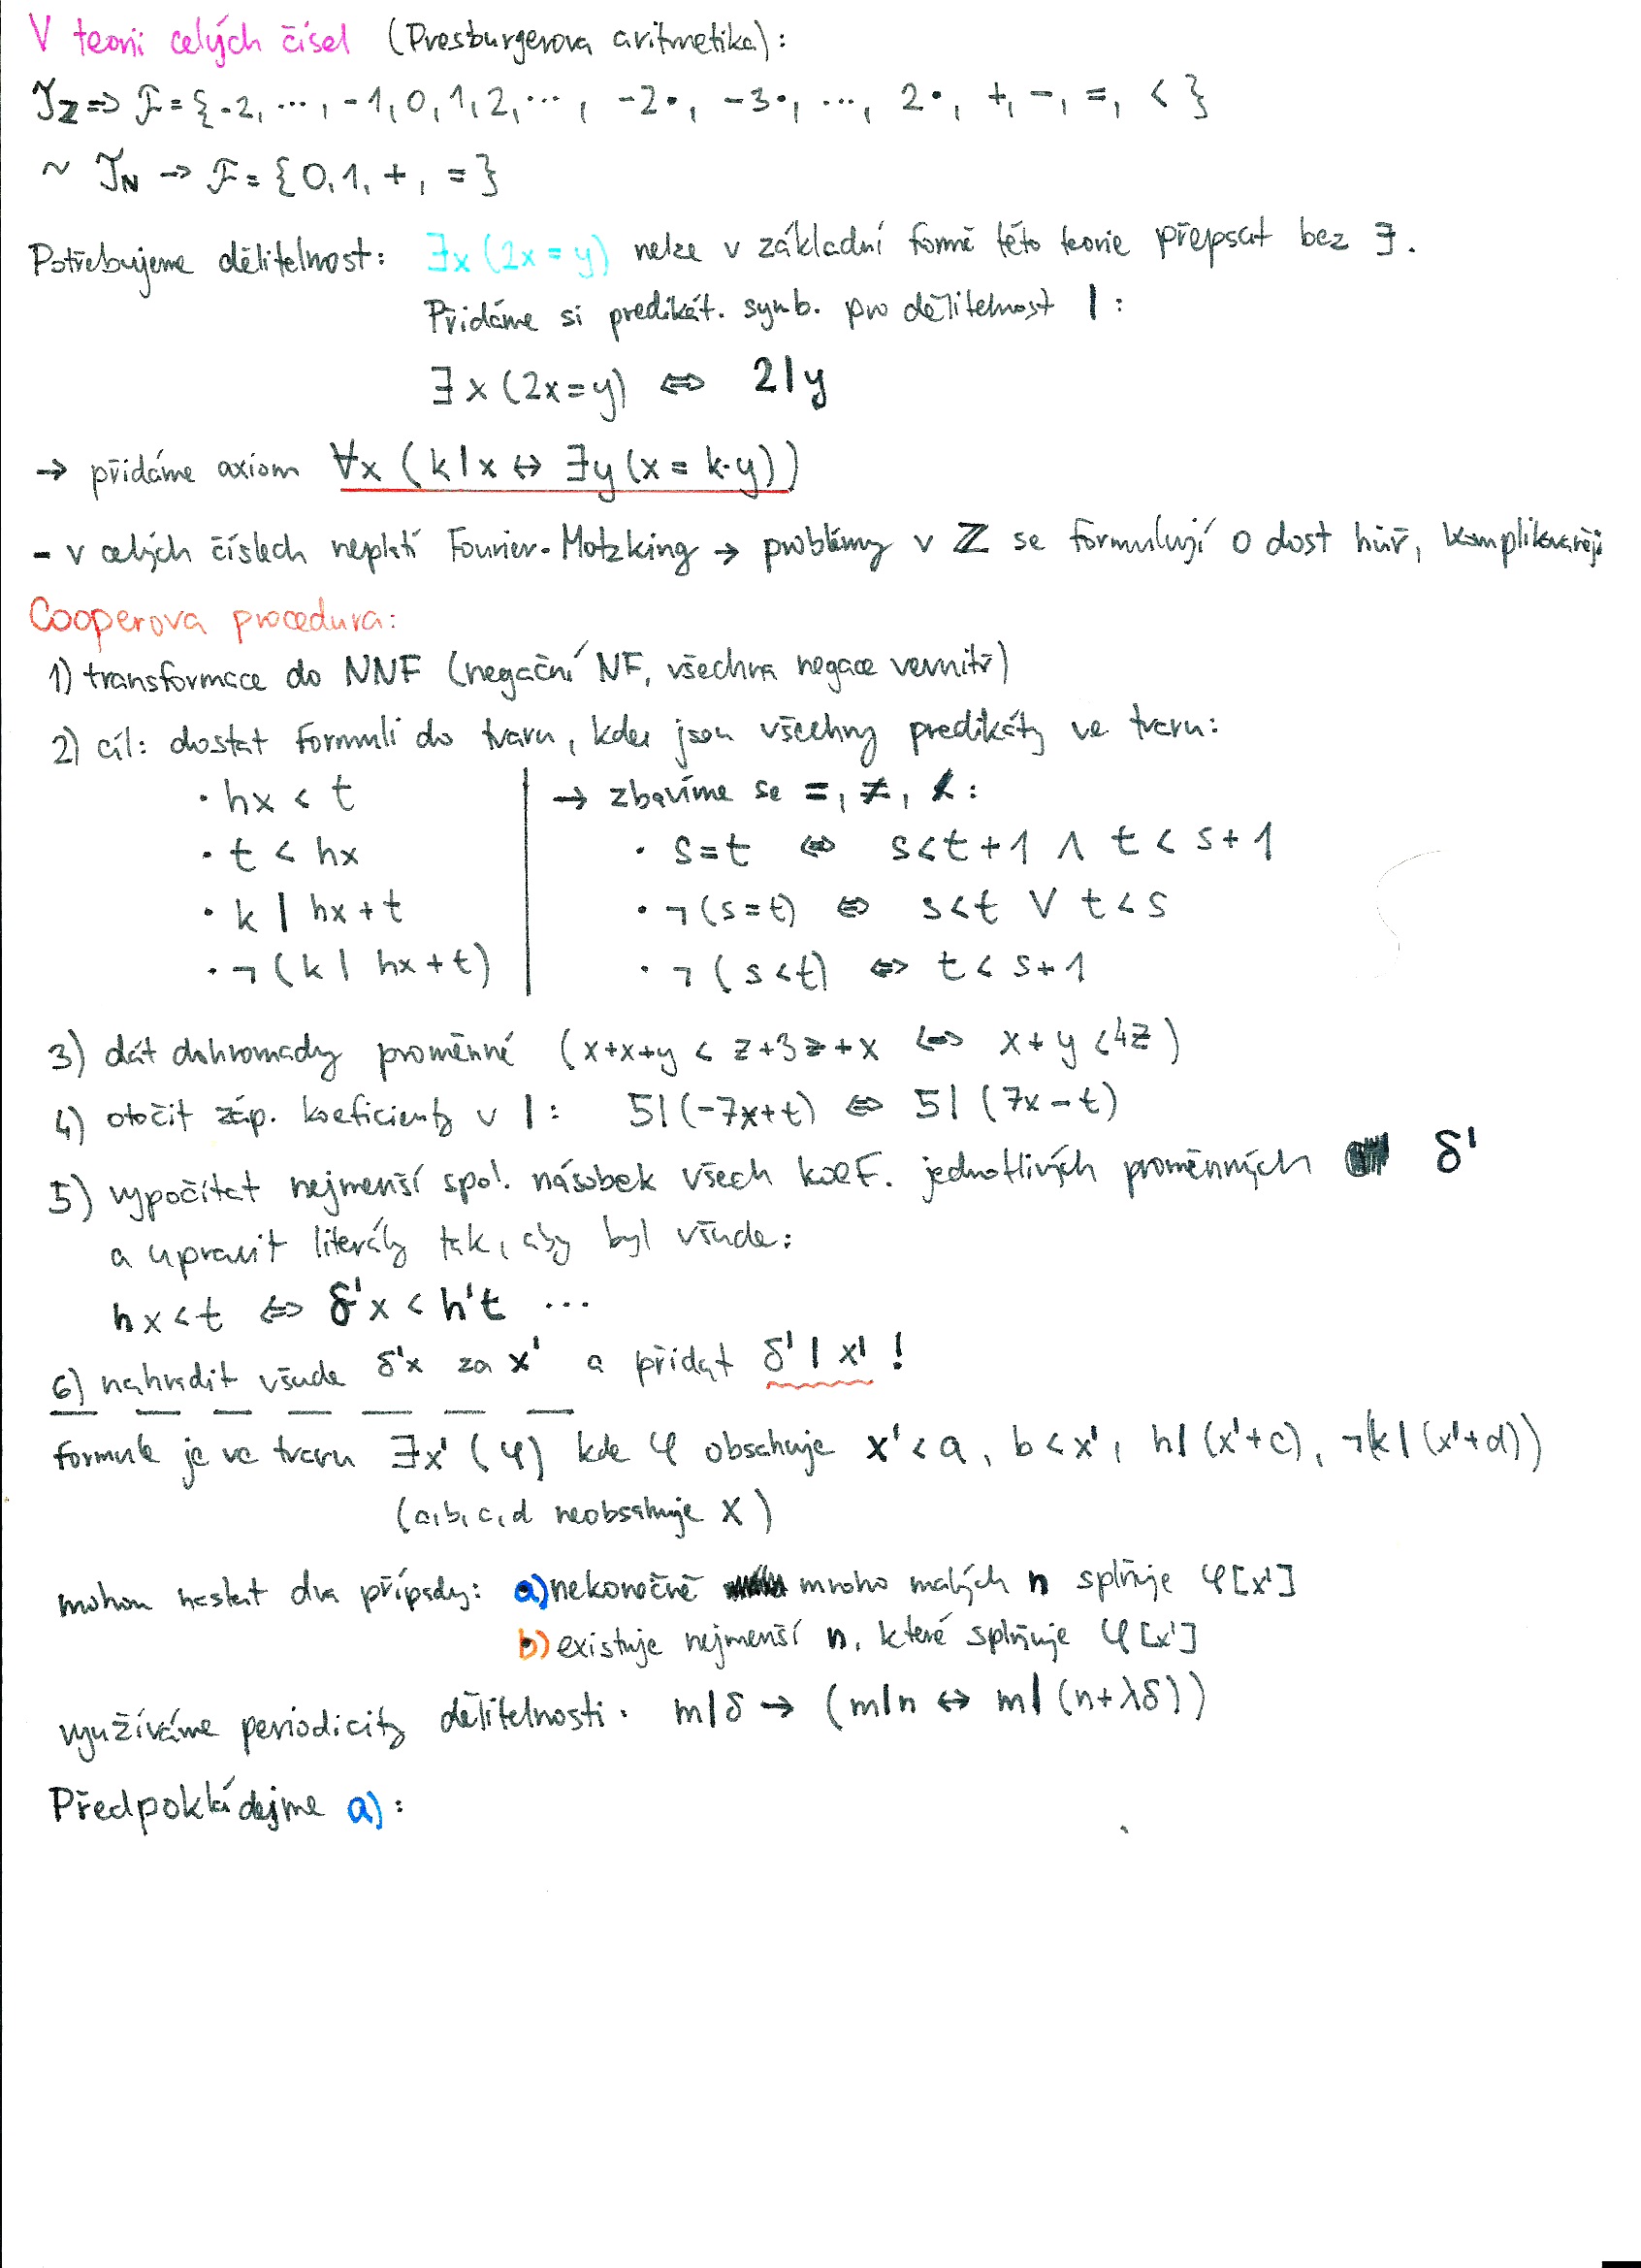 V teorii celých čísel (Presburgerova aritmetika):
𝒯ℤ => ℱ = {-2, ..., -1, 0, 1, 2, ..., -2•, -3•, ..., 2•, +, -, =, < }
~ 𝒯ℕ → ℱ = {0, 1, +, = }
Potřebujeme dělitelnost: ∃x (2x = y) nelze v základní formě této teorie přepsat bez ∃.
Přidáme si predikát. symb. pro dělitelnost | :
∃x (2x = y) ⇔ 2|y
→ přidáme axiom ∀x (k|x ↔ ∃y (x = k·y))
- v celých číslech neplatí Fourier-Motzking → problémy v ℤ se formulují o dost hůř, komplikovaněji
Cooperova procedura:
1) transformace do NNF (negační NF, všechna negace vevnitř)
2) cíl: dostat formuli do tvaru, kde jsou všechny predikáty ve tvaru:
• hx < t → zbavíme se =, ≠, ≮ :
• t < hx • s = t ⇔ s < t + 1 ∧ t < s + 1
• k | hx + t • ¬(s = t) ⇔ s < t ∨ t < s
• ¬(k | hx + t) • ¬(s < t) ⇔ t < s + 1
3) dát dohromady proměnné (x+x+y < z+3z+x ⇔ x+y < 4z)
4) otočit záp. koeficienty v | : 5|(-7x+t) ⇔ 5|(7x-t)
5) vypočítat nejmenší spol. násobek všech koef. jednotlivých proměnných δ'
a upravit literály tak, aby byl všude:
hx < t ⇔ δ'x < h't ...
6) nahradit všude δ'x za x' a přidat δ' | x' !
formule je ve tvaru ∃x' (φ) kde φ obsahuje x' < a, b < x', h|(x'+c), ¬(k|(x'+d))
(a,b,c,d neobsahuje x)
mohou nastat dva případy: a) nekonečně mnoho malých n splňuje φ[x']
b) existuje nejmenší n, které splňuje φ[x']
využíváme periodicity dělitelnosti. m|δ → (m|n ↔ m|(n+λδ))
Předpokládejme a) :